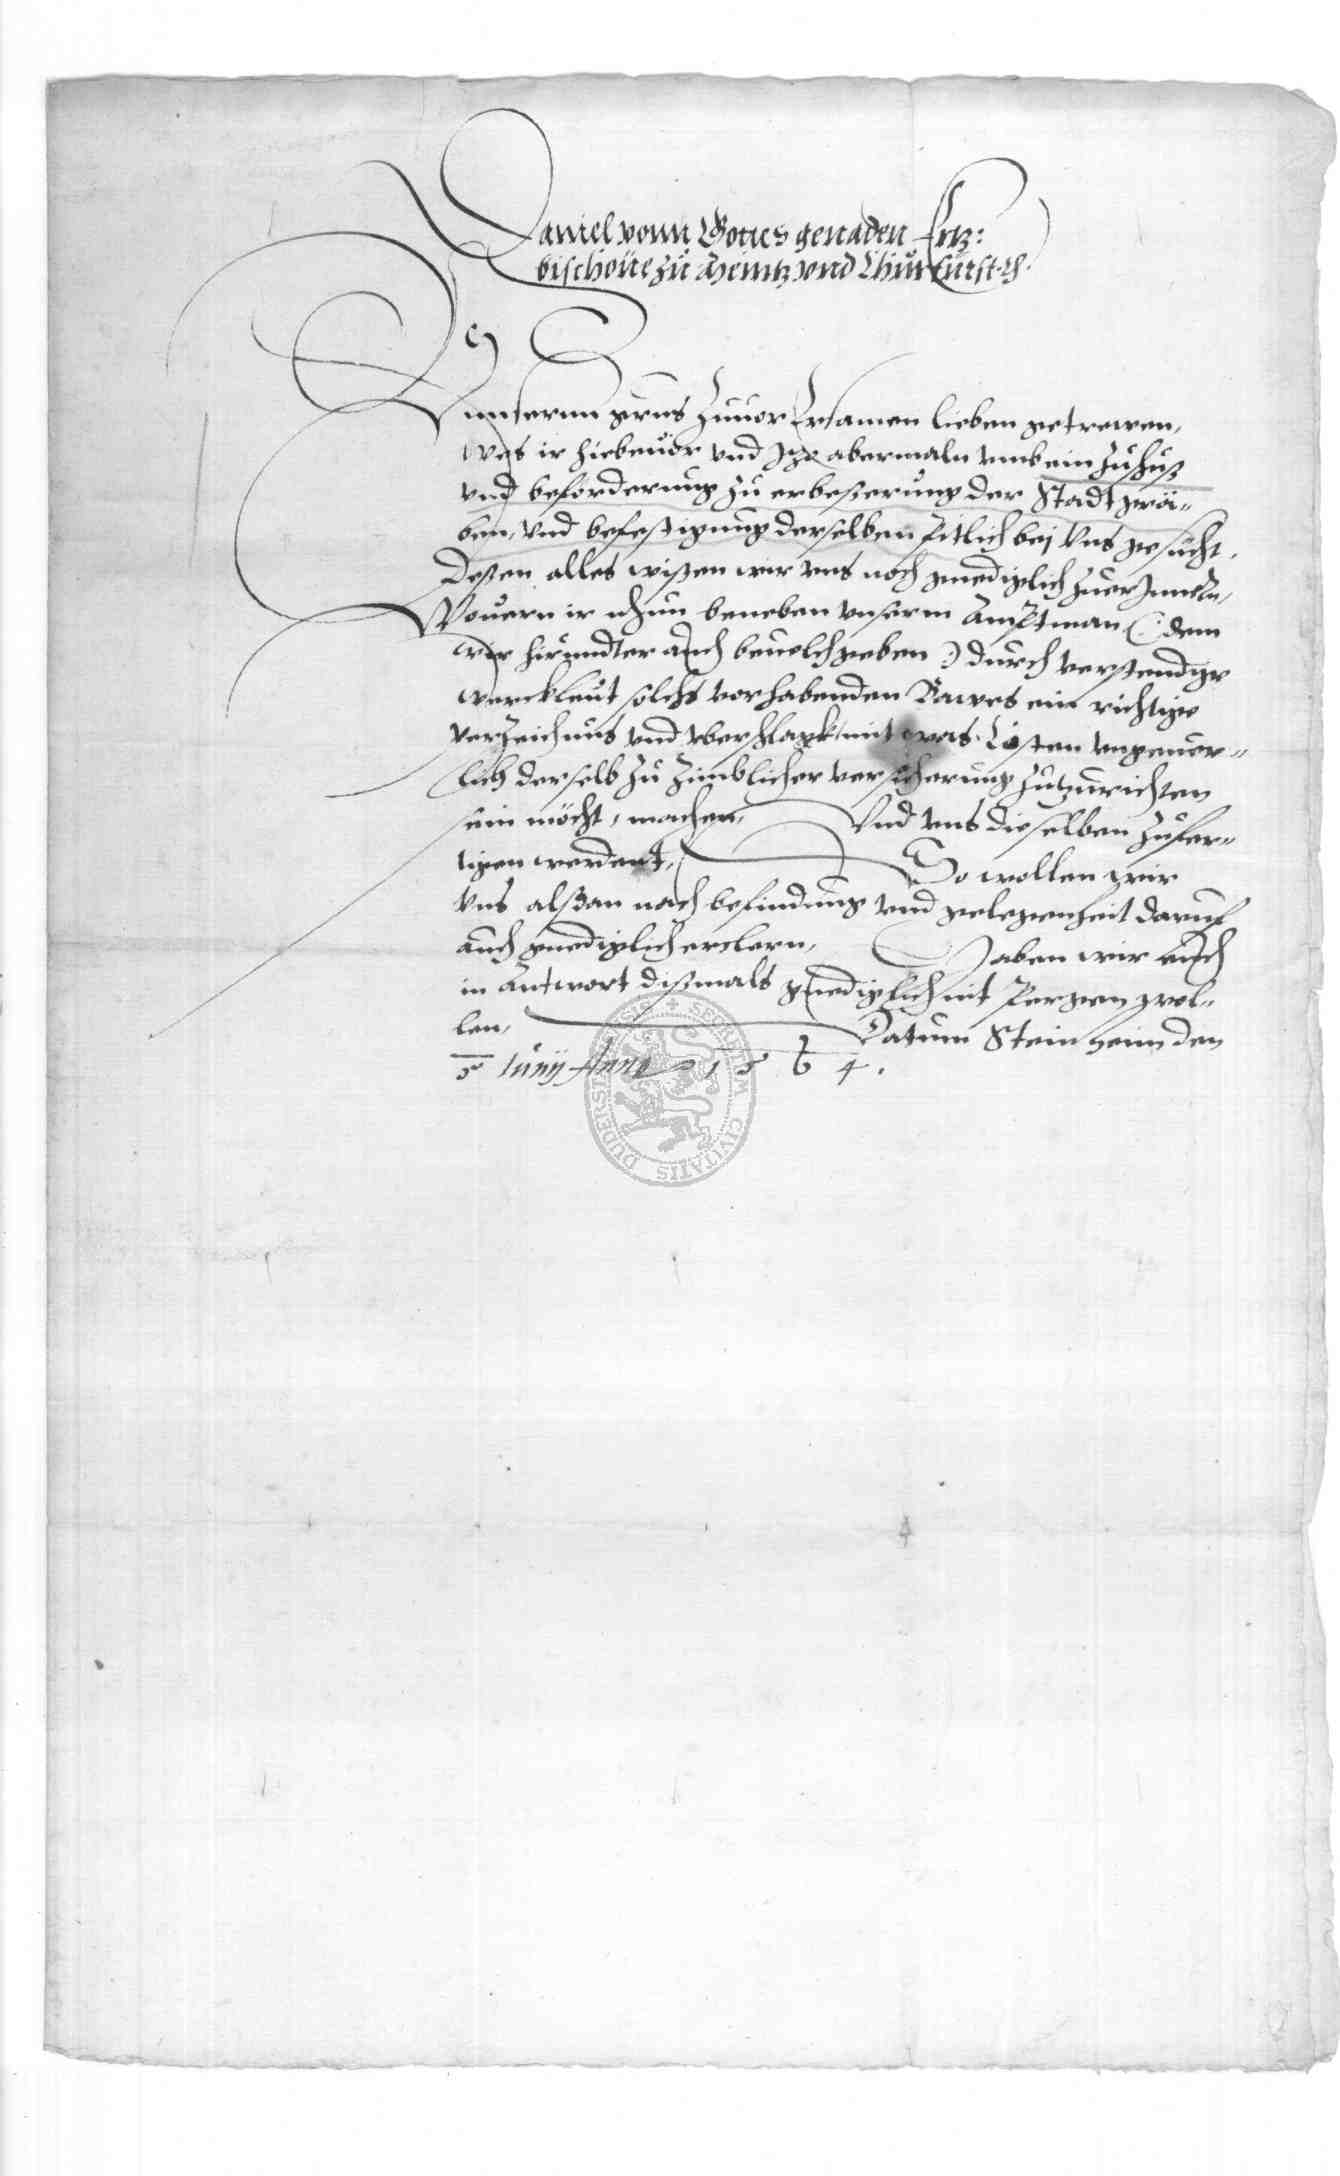 Daniel vonn Gottes genaden Ertz:
bischove zu Meintz vnd Churfurst. etc.
Vnnsernn grus zuuor Ersamen lieben getrewen,
Was ir hiebeuor vnd itzo abermaln vmb ein zuschuß
vnd beforderung zu erbeßerung der Stadtgrä-
ben, vnd befestigung derselben pitlich bej vns gesucht.
Deßen alles wißen wir vns noch gnediglich zuerinnern,
Wouern ir nhun beneben vnserm Amptman (: dem
wir hirundter auch beuelch geben :) durch verstendige
werckleut solchs vorhabenden Bawes ein richtige
verzeichnus vnd vberschlagk mit was Costen vngeuer-
lich derselb zu zimblicher versicherung zutzurichten
sein möcht, machen, Vnd vns dieselben zufer-
tigen werdent, So wollen wir
vns alßdan nach befindung vnd gelegenheit daruf
auch gnediglich ercleren, Haben wir euch
in antwort dißmals gnediglich nit pergen wol-
len, Datum Steinheim den
5 Iunij Anno 1564.
SIGILLUM CIVITATIS DUDERST